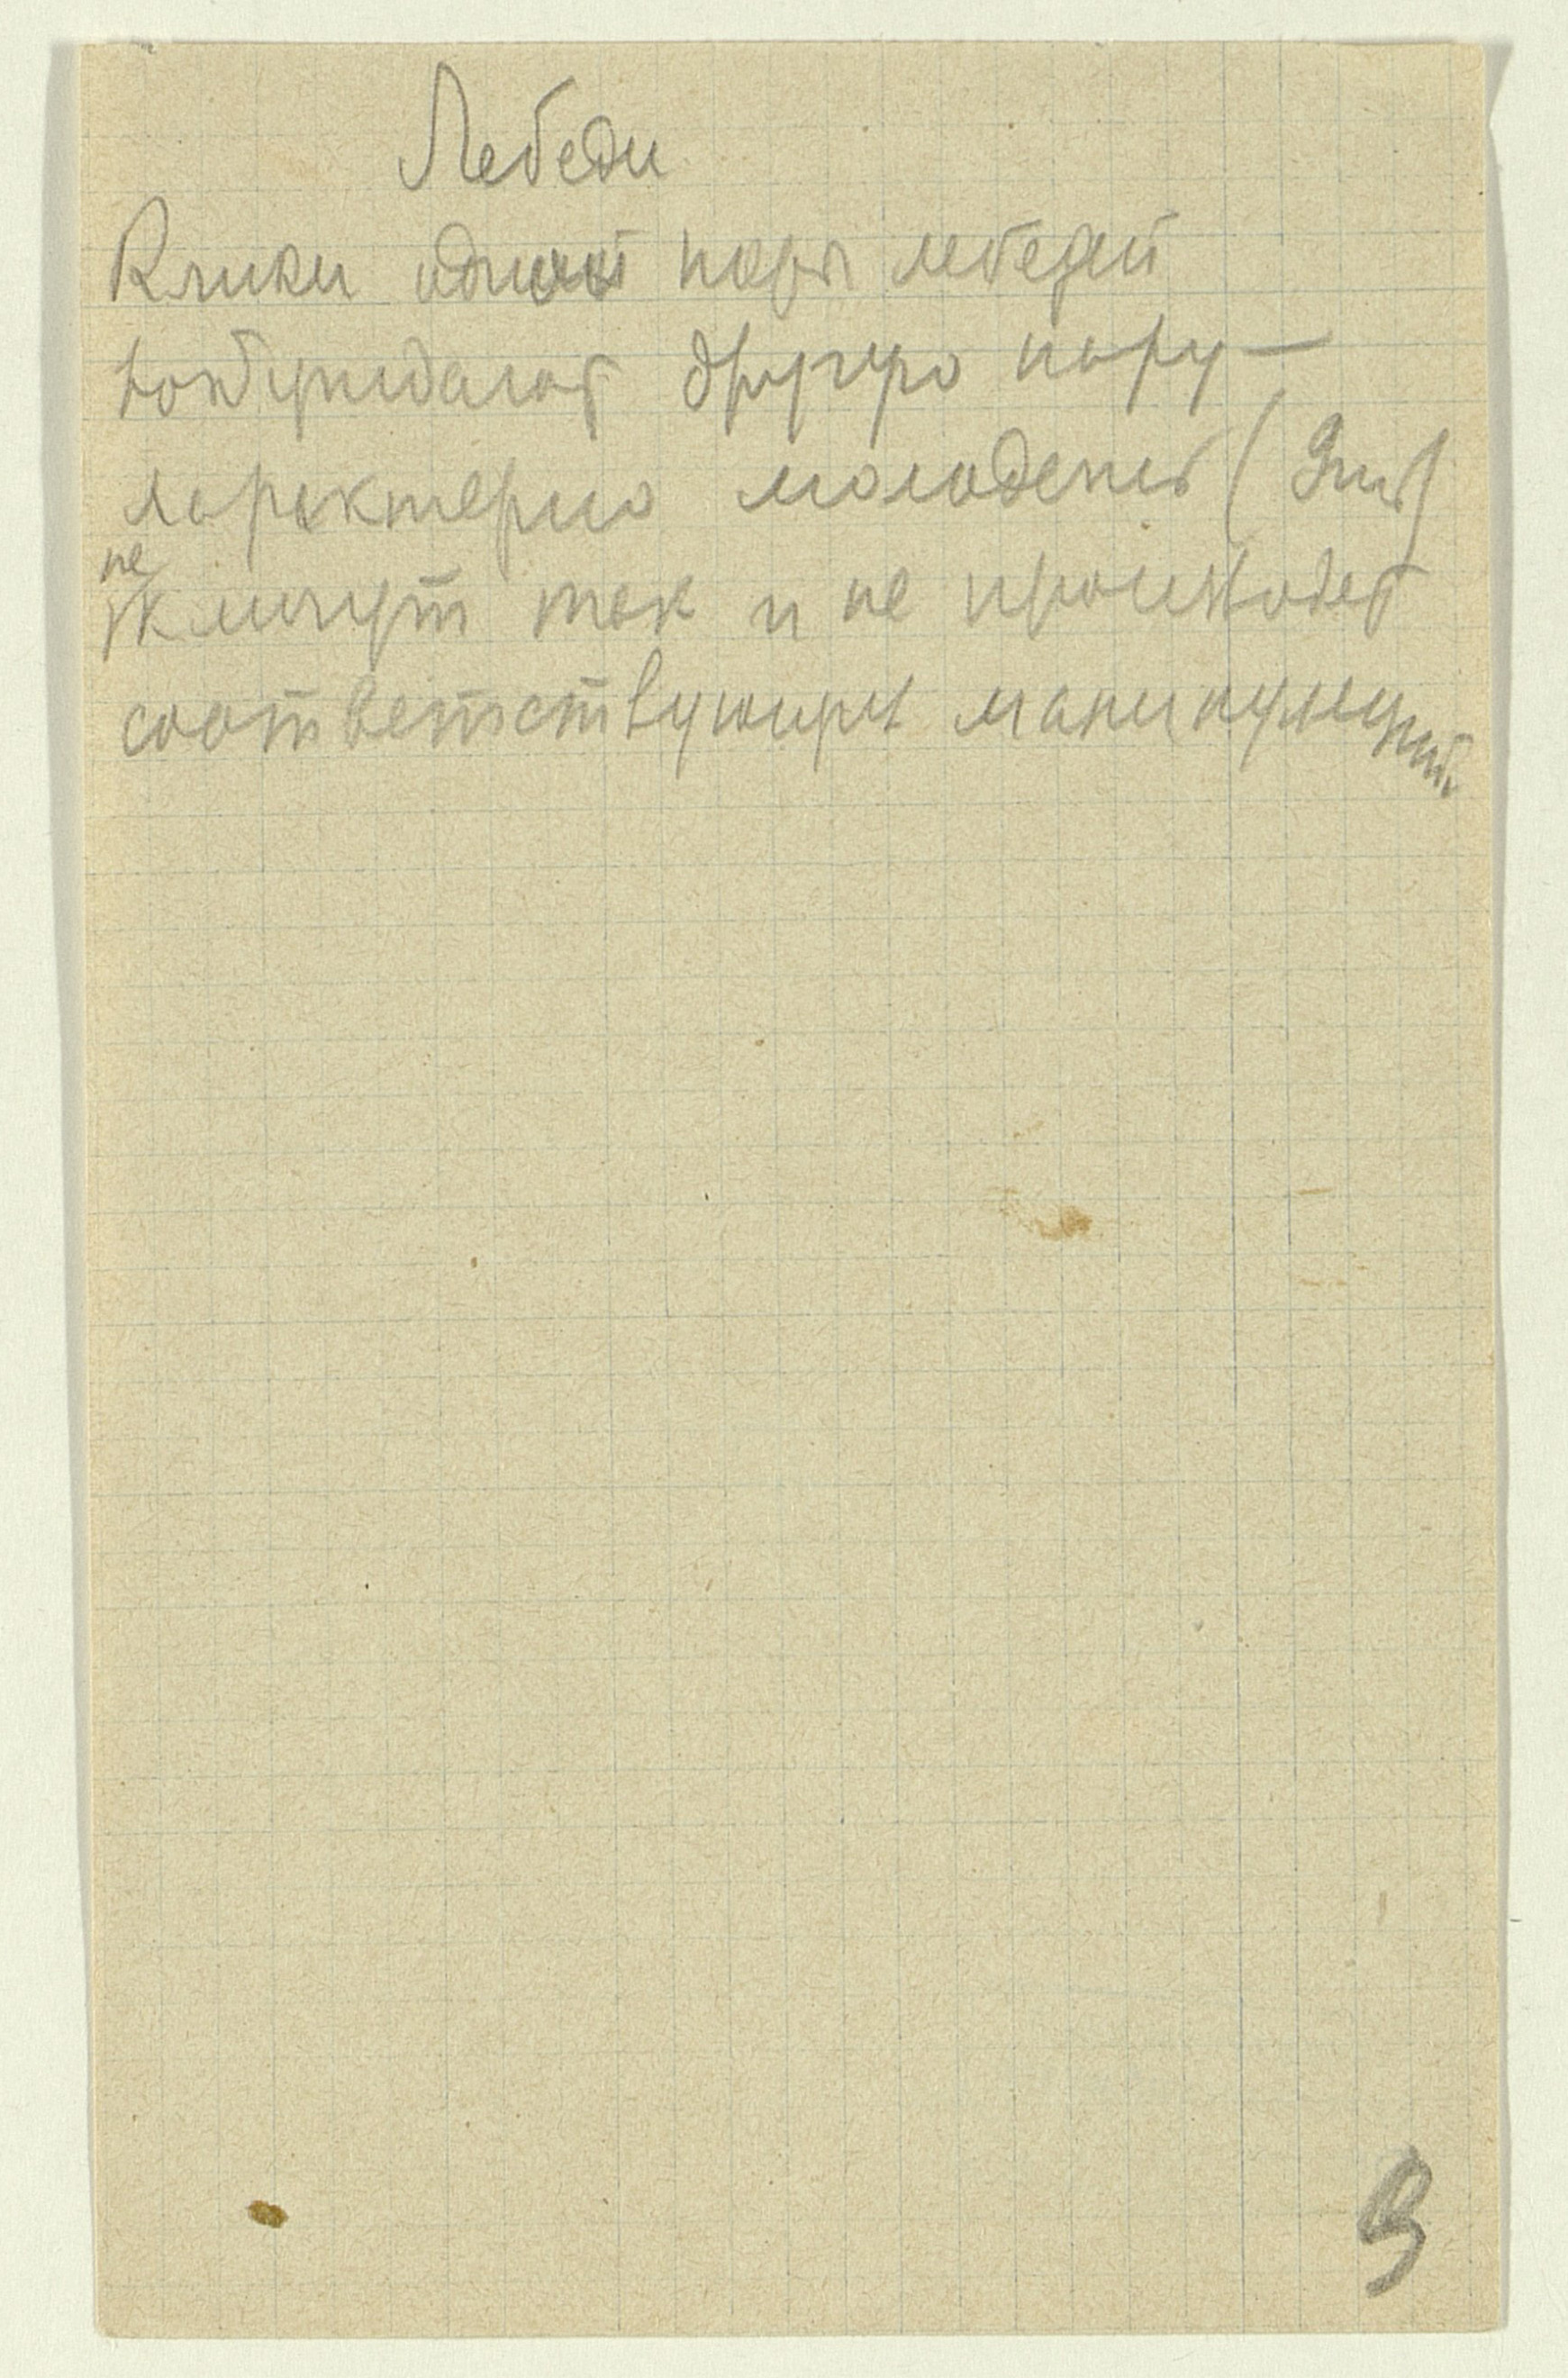 Лебеди
Клики одной пары лебедей
возбуждают другую пару —
характерно молодеть (Эти)
не
кличут так и не происходят
соответствующих манипуляций.
9